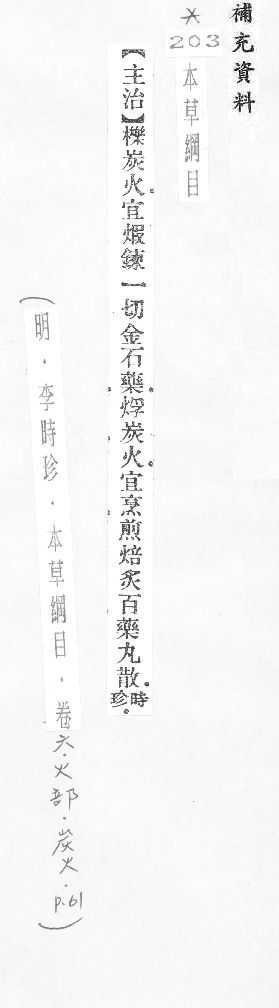 補充資料
*203
本草綱目
【主治】櫟炭火宜煅鍊一切金石藥。烰炭火宜烹煎焙炙百藥丸散。時珍。
(明.李時珍.本草綱目.卷六.火部.炭火.p.61)